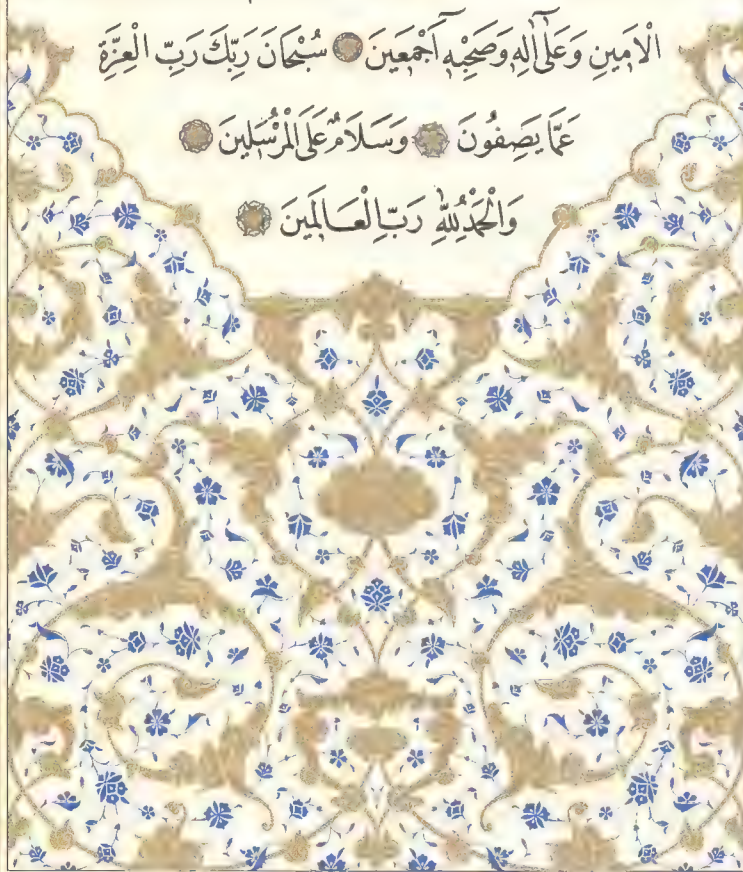 الْاَمِينِ وَعَلٰٓى اٰلِهٖ وَصَحْبِهٖٓ اَجْمَعِينَ ۝ سُبْحَانَ رَبِّكَ رَبِّ الْعِزَّةِ
عَمَّا يَصِفُونَ ۝ وَسَلَامٌ عَلَى الْمُرْسَلِينَ ۝
وَالْحَمْدُ لِلّٰهِ رَبِّ الْعَالَمِينَ ۝